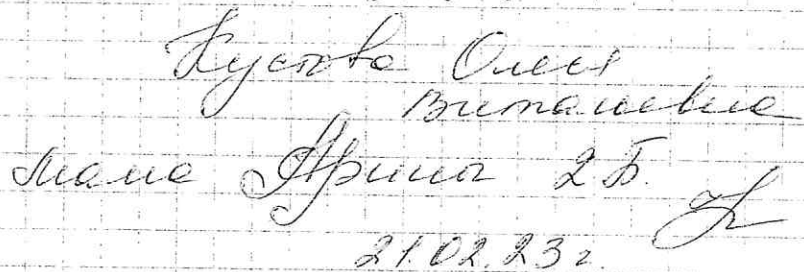 Кустова Олеся
Витальевна
мама Арины 2 Б.
21.02.23 г